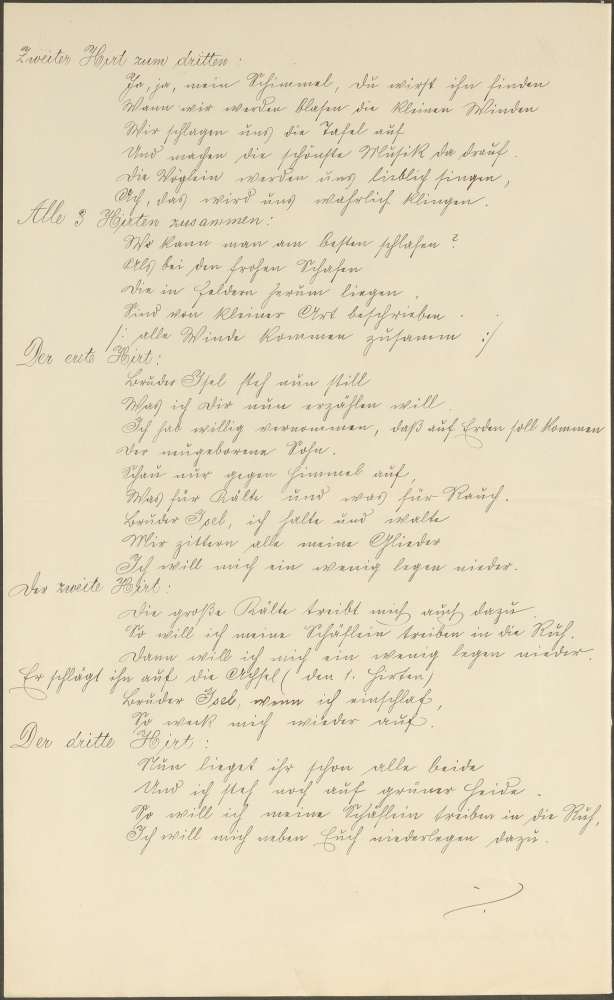 Zweiter Hirt zum dritten:
Ja, ja, mein Schimmel, du wirst ihn finden
Wann wir werden blasen die kleinen Winden
Wir schlagen uns die Tafel auf
Und machen die schönste Musik da drauf.
Die Vöglein werden uns lieblich singen,
Ach, das wird uns wahrlich klingen.
Alle 3 Hirten zusammen:
Wo kann man am besten schlafen?
Als bei den frohen Schafen
Die in Feldern herum liegen,
Sind von kleiner Art beschrieben.
/: alle Winde kommen zusamm :/
Der erste Hirt:
Bruder Isel steh nun still
Was ich dir nun erzählen will.
Ich hab willig vernommen, daß auf Erden soll kommen
Der neugeborene Sohn.
Schau nur gegen Himmel auf,
Was für Kälte und was für Rauch.
Bruder Isel, ich halte und walte
Mir zittern alle meine Glieder
Ich will mich ein wenig legen nieder.
Der zweite Hirt:
Die große Kälte treibt mich auch dazu.
So will ich meine Schäflein treiben in die Ruh.
Dann will ich mich ein wenig legen nieder.
Er schlägt ihn auf die Achsel (den 1. Hirten)
Bruder Isel, wenn ich einschlaf,
So weck mich wieder auf.
Der dritte Hirt:
Nun lieget ihr schon alle beide
Und ich steh noch auf grüner Heide.
So will ich meine Schäflein treiben in die Ruh,
Ich will mich neben Euch niederlegen dazu.